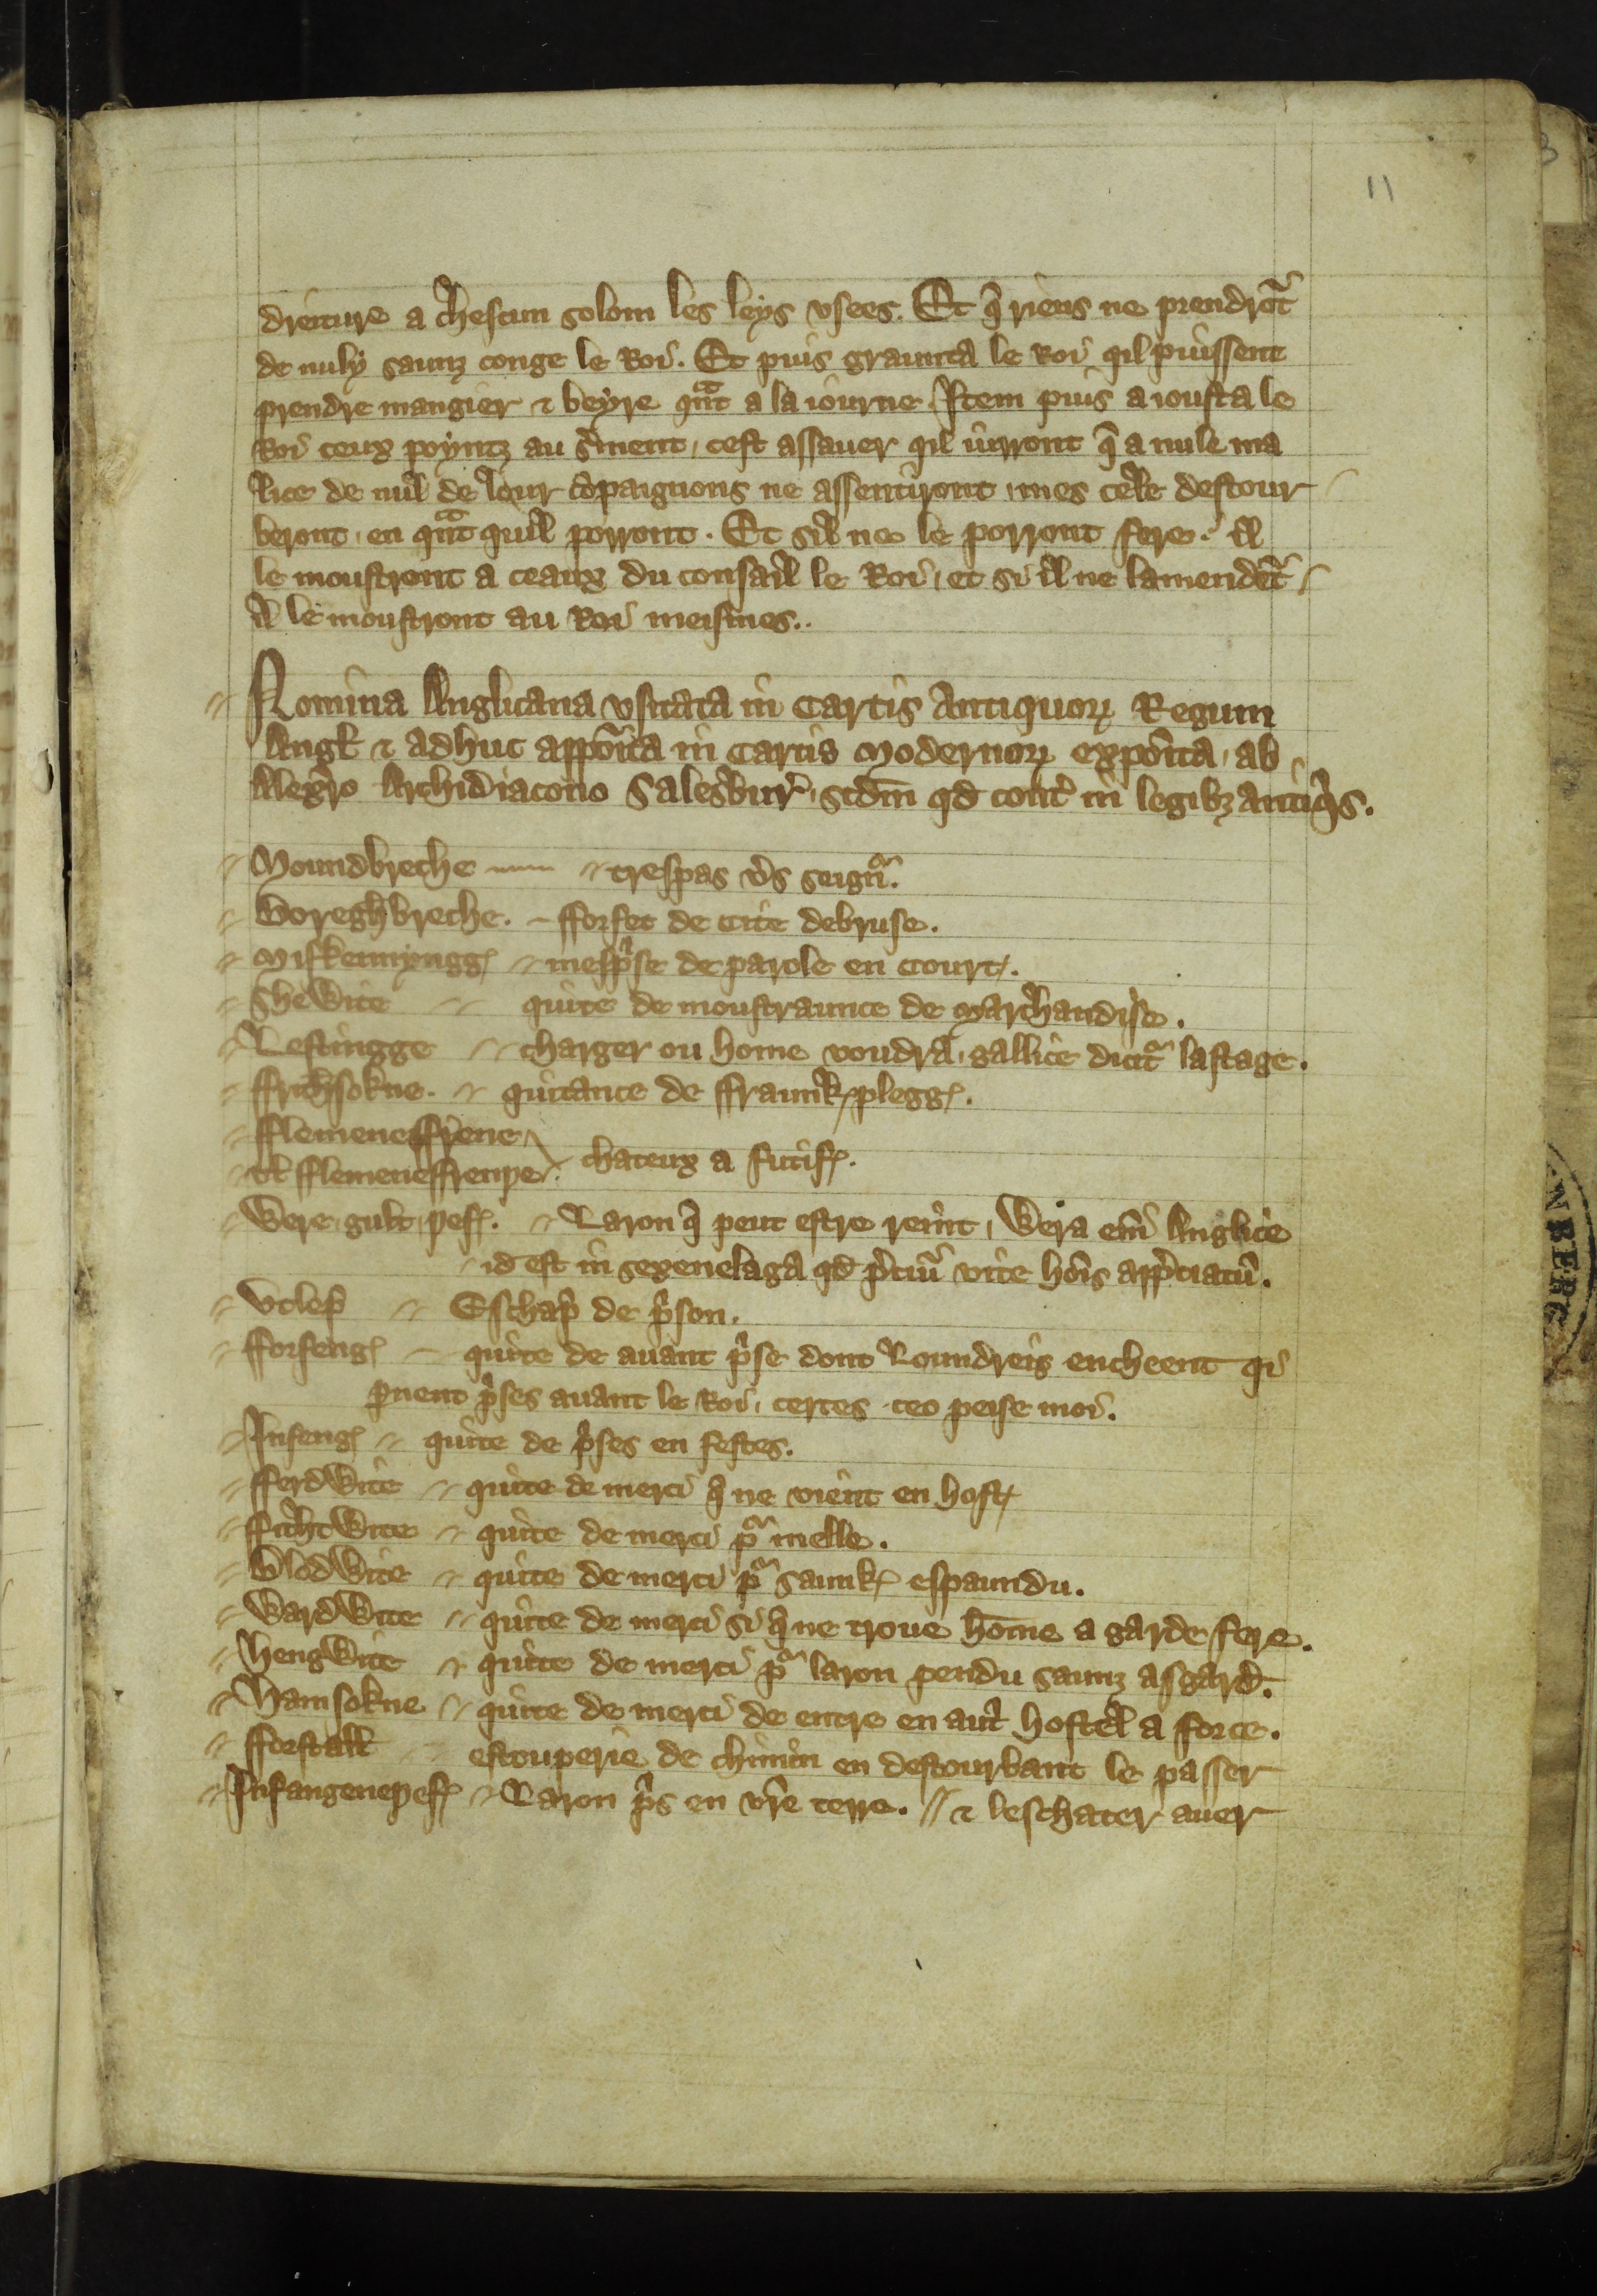 11
dreiture a chescun solom les leys vsees. Et q̄ riens ne prendrōt
de nuly saunz conge le Roi. Et puis graunta le Roi qil puissent
prendre mangier ⁊ beyre qͣnt a la iourne. Item puis aiousta le
Roi ceux poyntz au sˀment, cest assauer qil iurront q̄ a nule ma
lice de nul de lour cōpaignons ne assentiront, mes cele destour
beront, en qͣnt quil porront. Et sil ne le porront fere. il
le moustront a ceaux du consail le Roi, et si il ne lamendēt,
il le moustront au Roi meismes..
Nomina Anglicana vsitata in Cartis Antiquoꝝ Regum
Angł ⁊ adhuc apponˀta in Cartis Modernoꝝ exponˀta, ab
Alexˀro Archidiacono Salesˀburˀ, scdm̄ qd̄ contˀ in legibꝫ antiqͥs.
Moundbreche trespas vˀs seignˀ.
Boreghbreche. fforfet de Cite debruse.
Miskennyngg mespͥse de parole en Court.
Shewite quite de moustraunce de Marchandise.
Lestingge charger ou home voudra, gallice dicitˀ lastage.
ffrithsokne. quitance de ffraunkplegg.
fflemenesfrene
vł fflemeneffrenþe chateux a futif.
Were, gult, þef. Laron q̄ peut estre remˀnt, Wera em̄ Anglice
id est in sexenelaga qd̄ pˀciū vite hoīs appˀciatū.
Vtlep̄ Eschap̄ de pͥson.
fforfeng quite de auant pͥse dont Loundreis encheent qi
pˀnent pͥses auant le Roi, certes ceo peise moi.
Infeng quite de pͥses en festes.
fferdwite quite de merci q̄ ne vient en host
ffichtwite quite de merci pͬ melle.
Blodwite quite de merci pͬ saunk espaundu.
Wardwite quite de merci si q̄ ne troue hōme a garde fere.
Hengwite quite de merci pͬ laron pendu saunz asgard.
Hamsokne quite de merci de entre en autˀ hostel a force.
fforstałł estouperie de chimin en destourbant le passer
Infangeneþef Laron pͥs en vr̄e terre. // ⁊ leschater auer